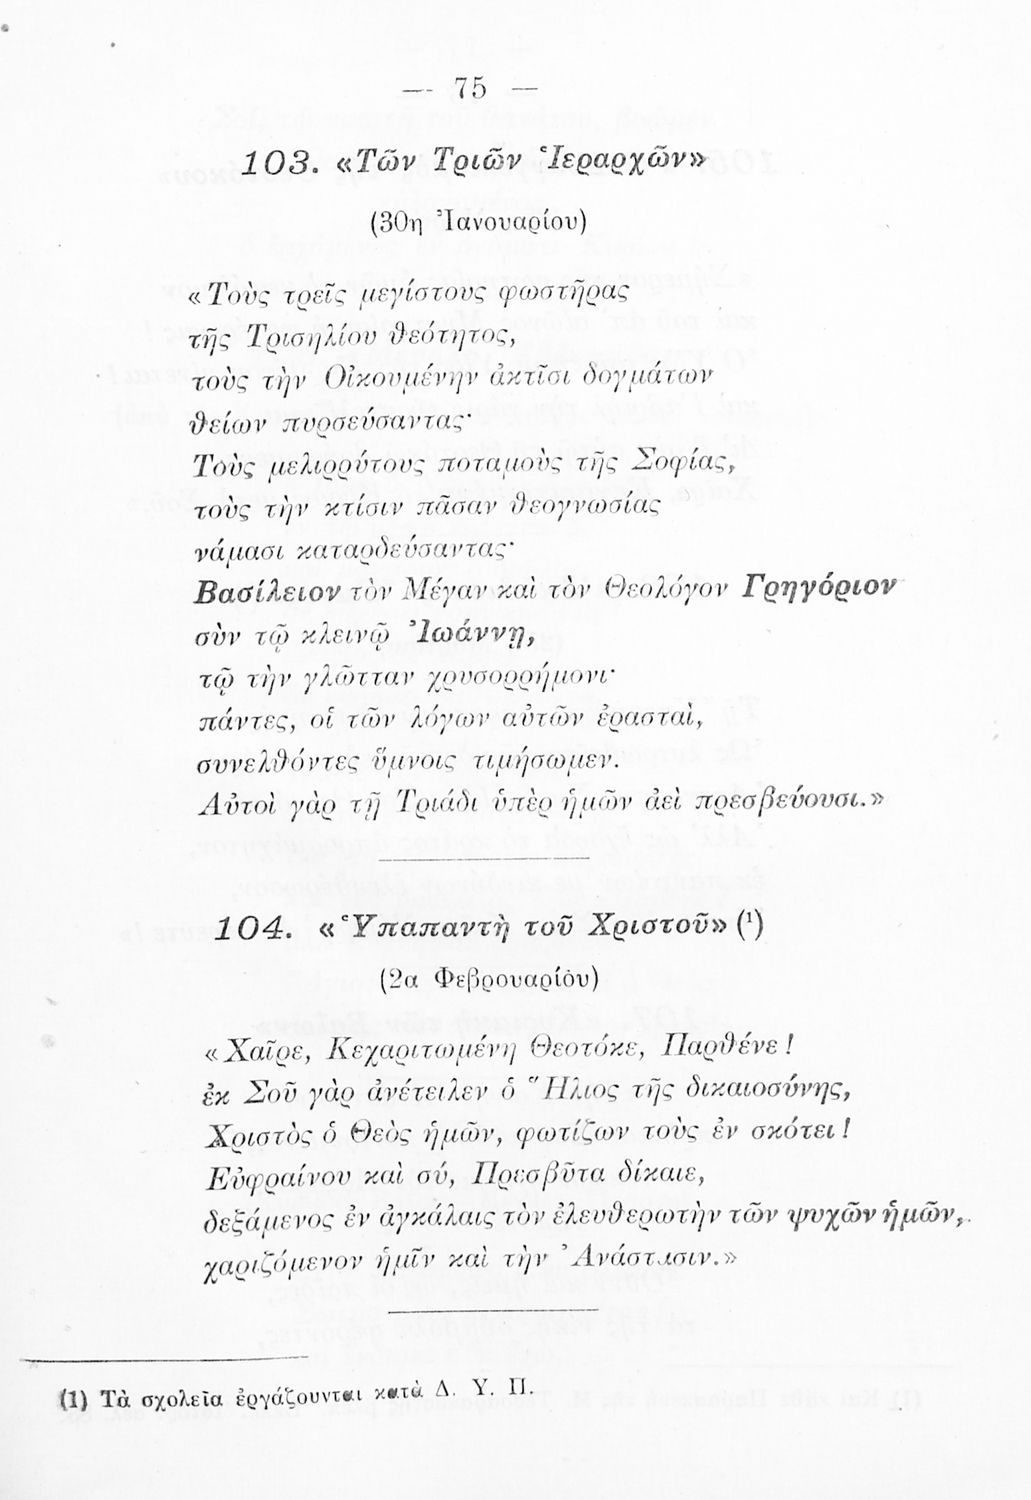 — 75 —
103. «Τῶν Τριῶν Ἱεραρχῶν»
(30η Ἰανουαρίου)
«Τοὺς τρεῖς μεγίστους φωστῆρας
τῆς Τρισηλίου θεότητος,
τοὺς τὴν Οἰκουμένην ἀκτῖσι δογμάτων
θείων πυρσεύσαντας·
Τοὺς μελιρρύτους ποταμοὺς τῆς Σοφίας,
τοὺς τὴν κτίσιν πᾶσαν θεογνωσίας
νάμασι καταρδεύσαντας·
Βασίλειον τὸν Μέγαν καὶ τὸν Θεολόγον Γρηγόριον
σὺν τῷ κλεινῷ Ἰωάννῃ,
τῷ τὴν γλῶτταν χρυσορρήμονι·
πάντες, οἱ τῶν λόγων αὐτῶν ἐρασταὶ,
συνελθόντες ὕμνοις τιμήσωμεν.
Αὐτοὶ γὰρ τῇ Τριάδι ὑπὲρ ἡμῶν ἀεὶ πρεσβεύουσι.»
104. «Ὑπαπαντὴ τοῦ Χριστοῦ» (¹)
(2α Φεβρουαρίου)
«Χαῖρε, Κεχαριτωμένη Θεοτόκε, Παρθένε!
ἐκ Σοῦ γὰρ ἀνέτειλεν ὁ Ἥλιος τῆς δικαιοσύνης,
Χριστὸς ὁ Θεὸς ἡμῶν, φωτίζων τοὺς ἐν σκότει!
Εὐφραίνου καὶ σύ, Πρεσβῦτα δίκαιε,
δεξάμενος ἐν ἀγκάλαις τὸν ἐλευθερωτὴν τῶν ψυχῶν ἡμῶν,
χαριζόμενον ἡμῖν καὶ τὴν Ἀνάστασιν.»
(1) Τὰ σχολεῖα ἐργάζουνται κατὰ Δ. Υ. Π.